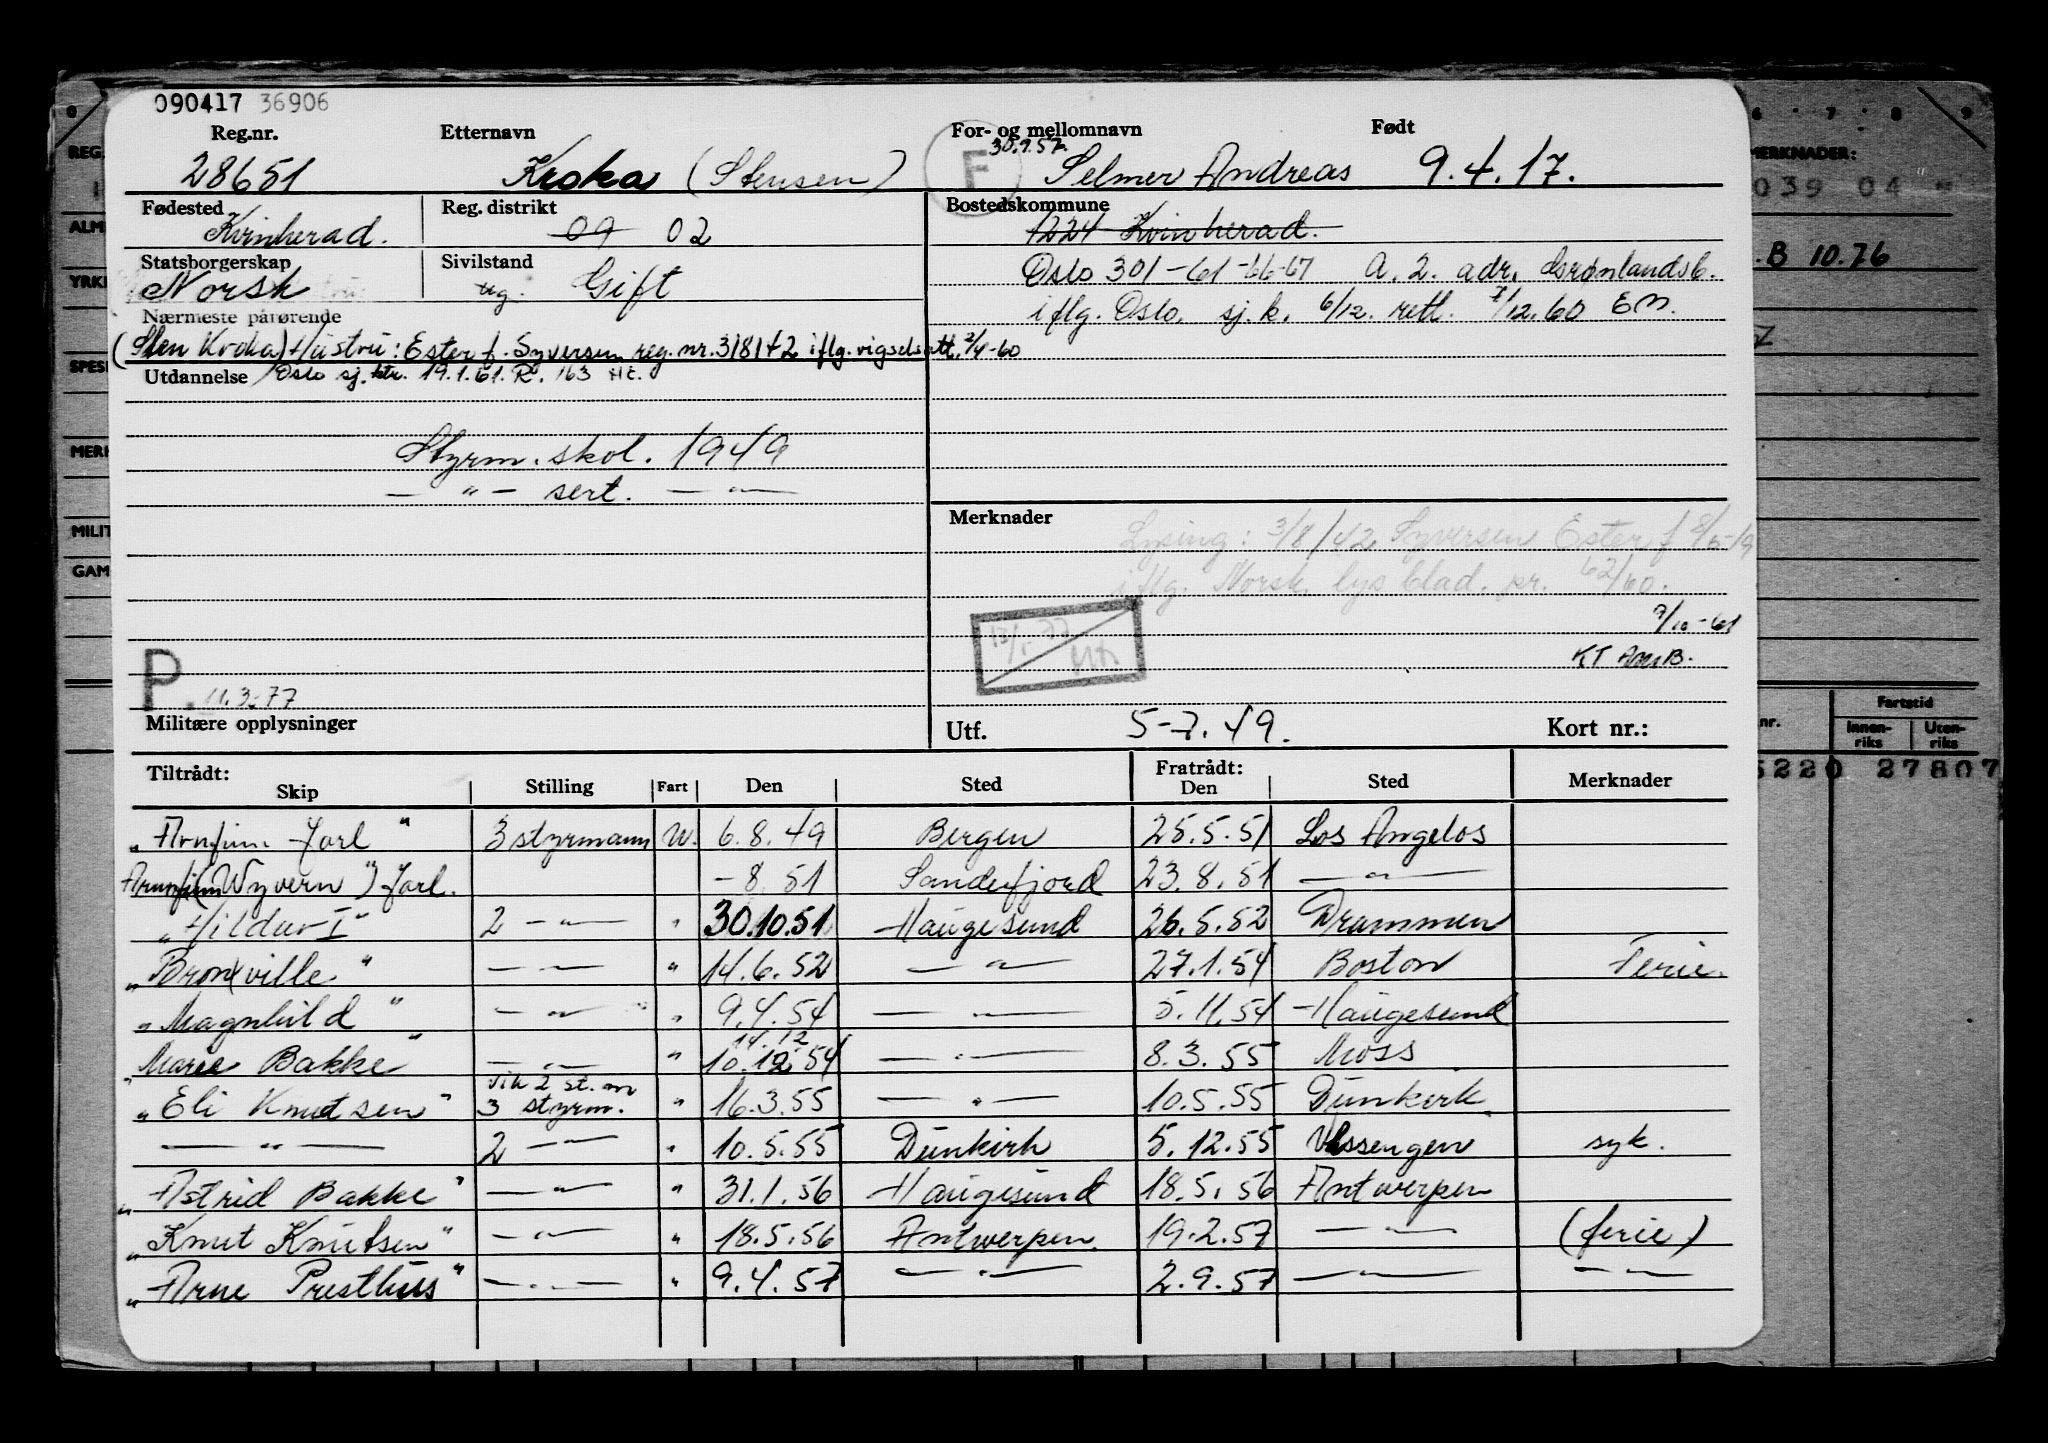 090417 36906
Reg.nr. Etternavn For- og mellomnavn Født
30.9.57.
28651 Kroka (Stensen) F Selmer Andreas 9.4.17.
Fødested Reg. distrikt Bostedskommune
Kvinherad. 09 02 1224 Kvinherad.
Statsborgerskap Sivilstand
Norsk ug. Gift
Oslo 301-61-66-67 A. 2. adr.
iflg. Oslo sj.k. 6/12. rett. 7/12.60 EM.
Nærmeste pårørende
(Sten Kroka) Hustru: Ester f. Syversen reg.nr. 318142 iflg. vigselsatt. 2/4-60
Utdannelse Oslo sj.ktr. 19.1.61. R. 163
Styrm. skol. 1949
— " — sert. — " —
Merknader
Lysing: 3/8/42 Syversen Ester f.
iflg. Norsk lysblad. nr. 62/60.
9/10-61
KT
P. 11.3.77
Militære opplysninger Utf. 5-7.49. Kort nr.:
Tiltrådt: Fratrådt:
Skip Stilling Fart Den Sted Den Sted Merknader
"Arnfinn Jarl" 3 styrmann U. 6.8.49 Bergen 25.5.51 Los Angelos
Arnfinn (Wyvern") Jarl. -8.51 Sandefjord 23.8.51 — " —
"Hildur I" 2 — " — " 30.10.51 Haugesund 26.5.52 Drammen
"Bronxville" — " — " 14.6.52 — " — 27.1.54 Boston Ferie.
"Magnhild" — " — " 9.4.54 — " — 5.11.54 Haugesund
14.12
"Marie Bakke" — " — " 10.12.54 — " — 8.3.55 Moss
vik 2 st.m
"Eli Knutsen" 3 styrm. " 16.3.55 — " — 10.5.55 Dunkirk
— " — 2 — " — " 10.5.55 Dunkirk 5.12.55 Vlissengen syk.
"Astrid Bakke" — " — " 31.1.56 Haugesund 18.5.56 Antwerpen
"Knut Knutsen" — " — " 18.5.56 Antwerpen. 19.2.57 — " — (ferie)
"Arne Presthus" — " — " 9.4.57 — " — 2.9.57 — " — — " —
REG.
ALM
YRK
SPES
MERK
MILIT
GAM
6 7 8 9
MERKNADER:
039 04
B 10.76
nr. Fartstid
Innen-riks Uten-riks
5220 27807